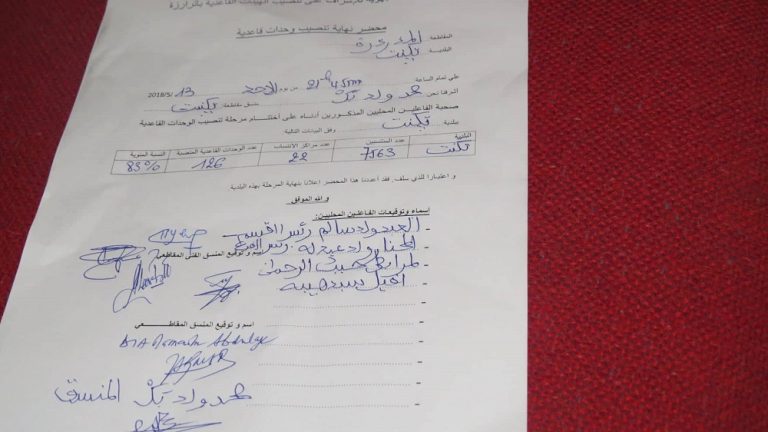 للإشراف على تنصيب الهيئات القاعدية بالترارزة
محضر نهاية تنصيب وحدات قاعدية
المقاطعة المذرذرة
البلدية تكنت
على تمام الساعة 21h 45mn من يوم الأحد 13 /2018/5
أشرفنا نحن محمد ولد تگ منسق مقاطعة تكنت
صحبة الفاعلين المحليين المذكورين أدناه على اختتام مرحلة تنصيب الوحدات القاعدية
ببلدية تكنت وفق البيانات التالية:
البلدية عدد المنتسبين عدد مراكز الانتساب عدد الوحدات القاعدية المنصبة النسبة المئوية
تكنت 7563 22 126 83%
و اعتبارا للذي سلف، فقد أعددنا هذا المحضر إعلانا بنهاية المرحلة بهذه البلدية
و الله الموفق
أسماء وتوقيعات الفاعلين المحليين:
- العبد ولد سالم رئيس القسم
- المختار ولد عبد له رئيس الفرع
اسم و توقيع المنسق الفني المقاطعي
- حبيب الرحمن
-
اسم و توقيع المنسق المقاطعي
محمد ولد تگ المنسق